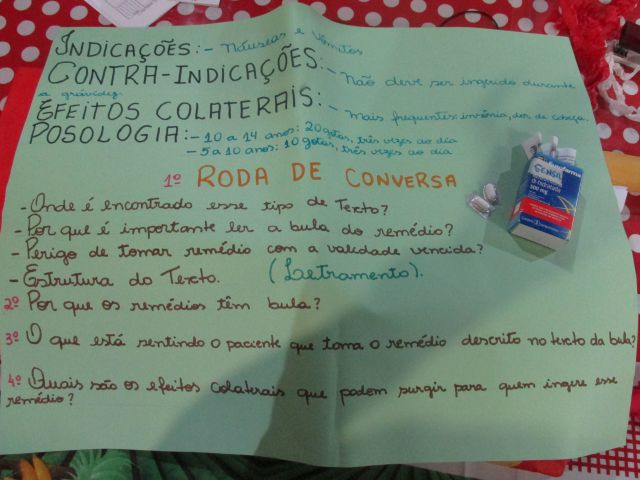 INDICAÇÕES:- Náuseas e vômitos
CONTRA-INDICAÇÕES:- Não deve ser ingerido durante
a gravidez.
EFEITOS COLATERAIS:- Mais frequentes: insônia, dor de cabeça.
POSOLOGIA:- 10 a 14 anos: 20 gotas, três vezes ao dia
- 5 a 10 anos: 10 gotas, três vezes ao dia
1º RODA DE CONVERSA
- Onde é encontrado esse tipo de Texto?
- Por que é importante ler a bula do remédio?
- Perigo de tomar remédio com a validade vencida?
- Estrutura do Texto. (Letramento).
2º Por que os remédios têm bula?
3º O que está sentindo o paciente que toma o remédio descrito no texto da bula?
4º Quais são os efeitos colaterais que podem surgir para quem ingere esse
remédio?
500 mg